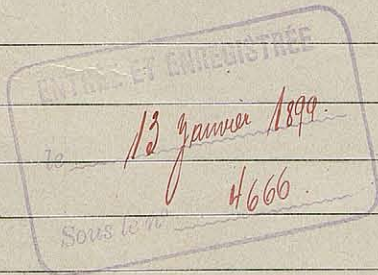 ENTRÉE ET ENREGISTRÉE
le 13 Janvier 1899.
Sous le n° 4666.